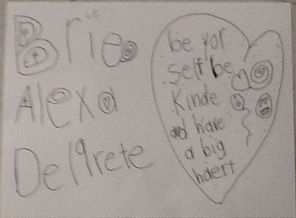 Brie
Alexa
Delprete
be yor
self be
Kinde
and have
a big
haert